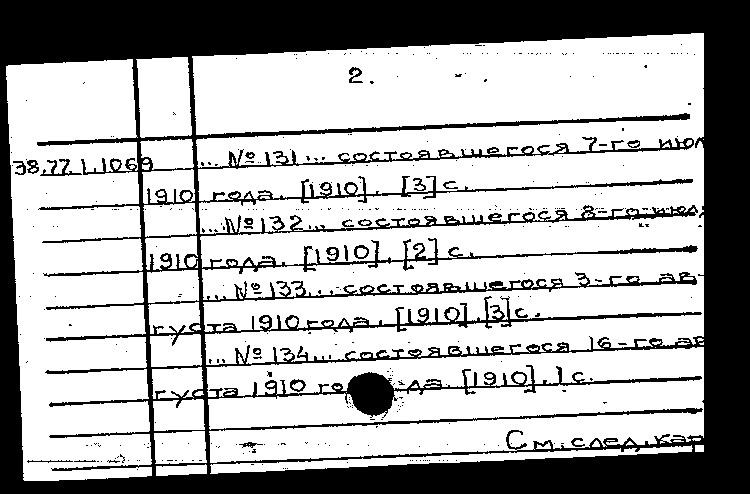 2.
38.77.1.1069 ... № 131 ... состоявшегося 7-го июл
1910 года. [1910]. [3] с.
... № 132 ... состоявшегося 8-го июл
1910 года. [1910]. [2] с.
... № 133 ... состоявшегося 3-го ав-
густа 1910 года. [1910]. [3] с.
... № 134 ... состоявшегося 16-го ав
густа 1910 года. [1910]. 1 с.
См. след. кар